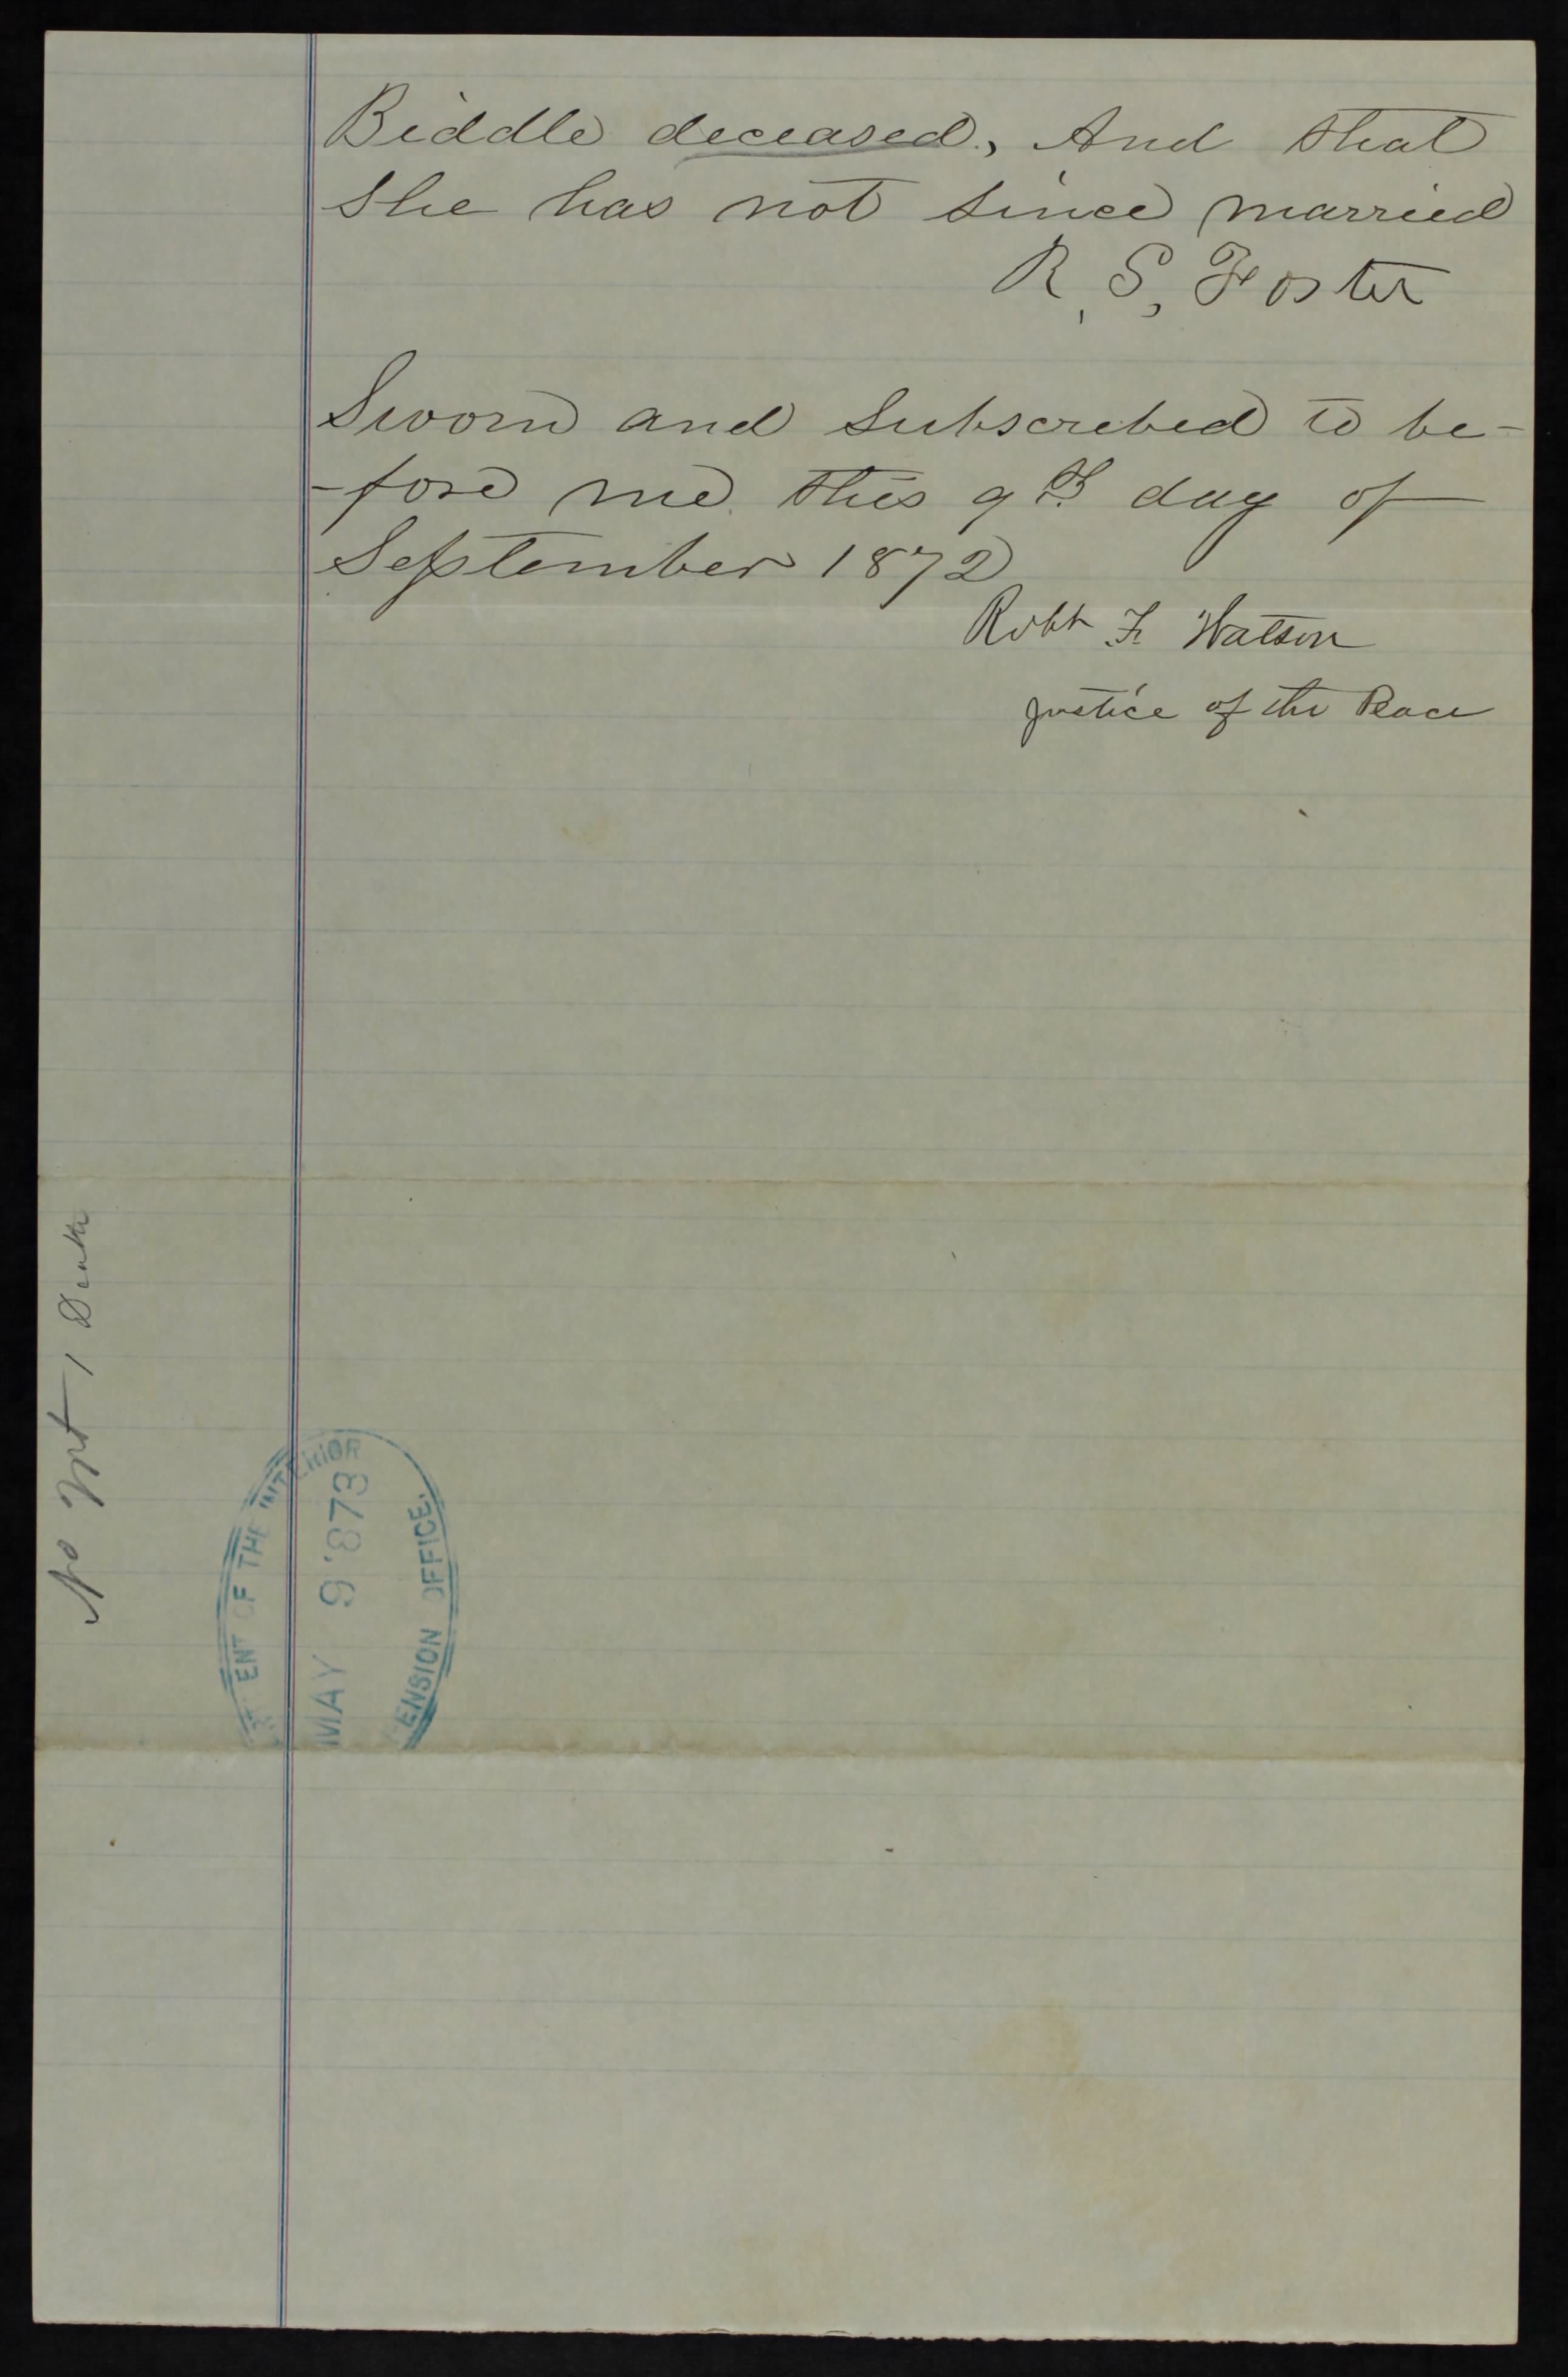 Biddle deceased., And that
She has not since married
R. S, Foster
Sworn and Subscrebed to be-
-fore me this 9th day of
September 1872
Robt F. Watson
Justice of the Peace
No
Death
ENT OF THE INTERIOR
MAY 9 '873
ENSION OFFICE.